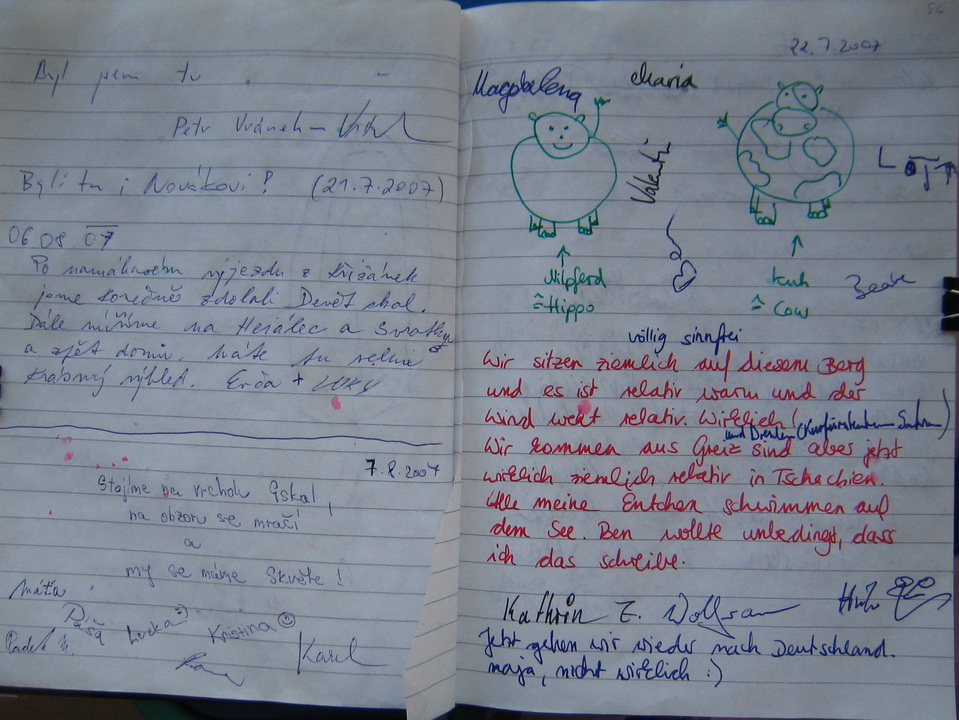 Byl jsem tu
Petr Vránek
Byli tu i Novákovi! (21.7.2007)
06 08 07
Po namáhavém výjezdu z Křižánek
jsme konečně zdolali Devět skal.
Dále míříme na Herálec a Svratku
a zpět domů. Máte tu velmi
krásný výhled. Erča +
7.8.2007
Stojíme na vrcholu 9skal,
na obzoru se mračí
a
my se máme skvěte!
Máťa
Páša
Lucka
Kristina
Radek H.
Karel
56
22.7.2007
Magdalena
Maria
Valentin
Nilpferd
≙ Hippo
Kuh
≙ Cow
Beate
völlig sinnfrei
Wir sitzen ziemlich auf diesem Berg
und es ist relativ warm und der
Wind weht relativ. Wirklich!
und Dresden (Kurfürstentum Sachsen)
Wir kommen aus Greiz sind aber jetzt
wirklich ziemlich relativ in Tschechien.
Alle meine Entchen schwimmen auf
dem See. Ben wollte unbedingt, dass
ich das schreibe.
Kathrin E. Wolfram
Jetzt gehen wir wieder nach Deutschland.
naja, nicht wirklich :)